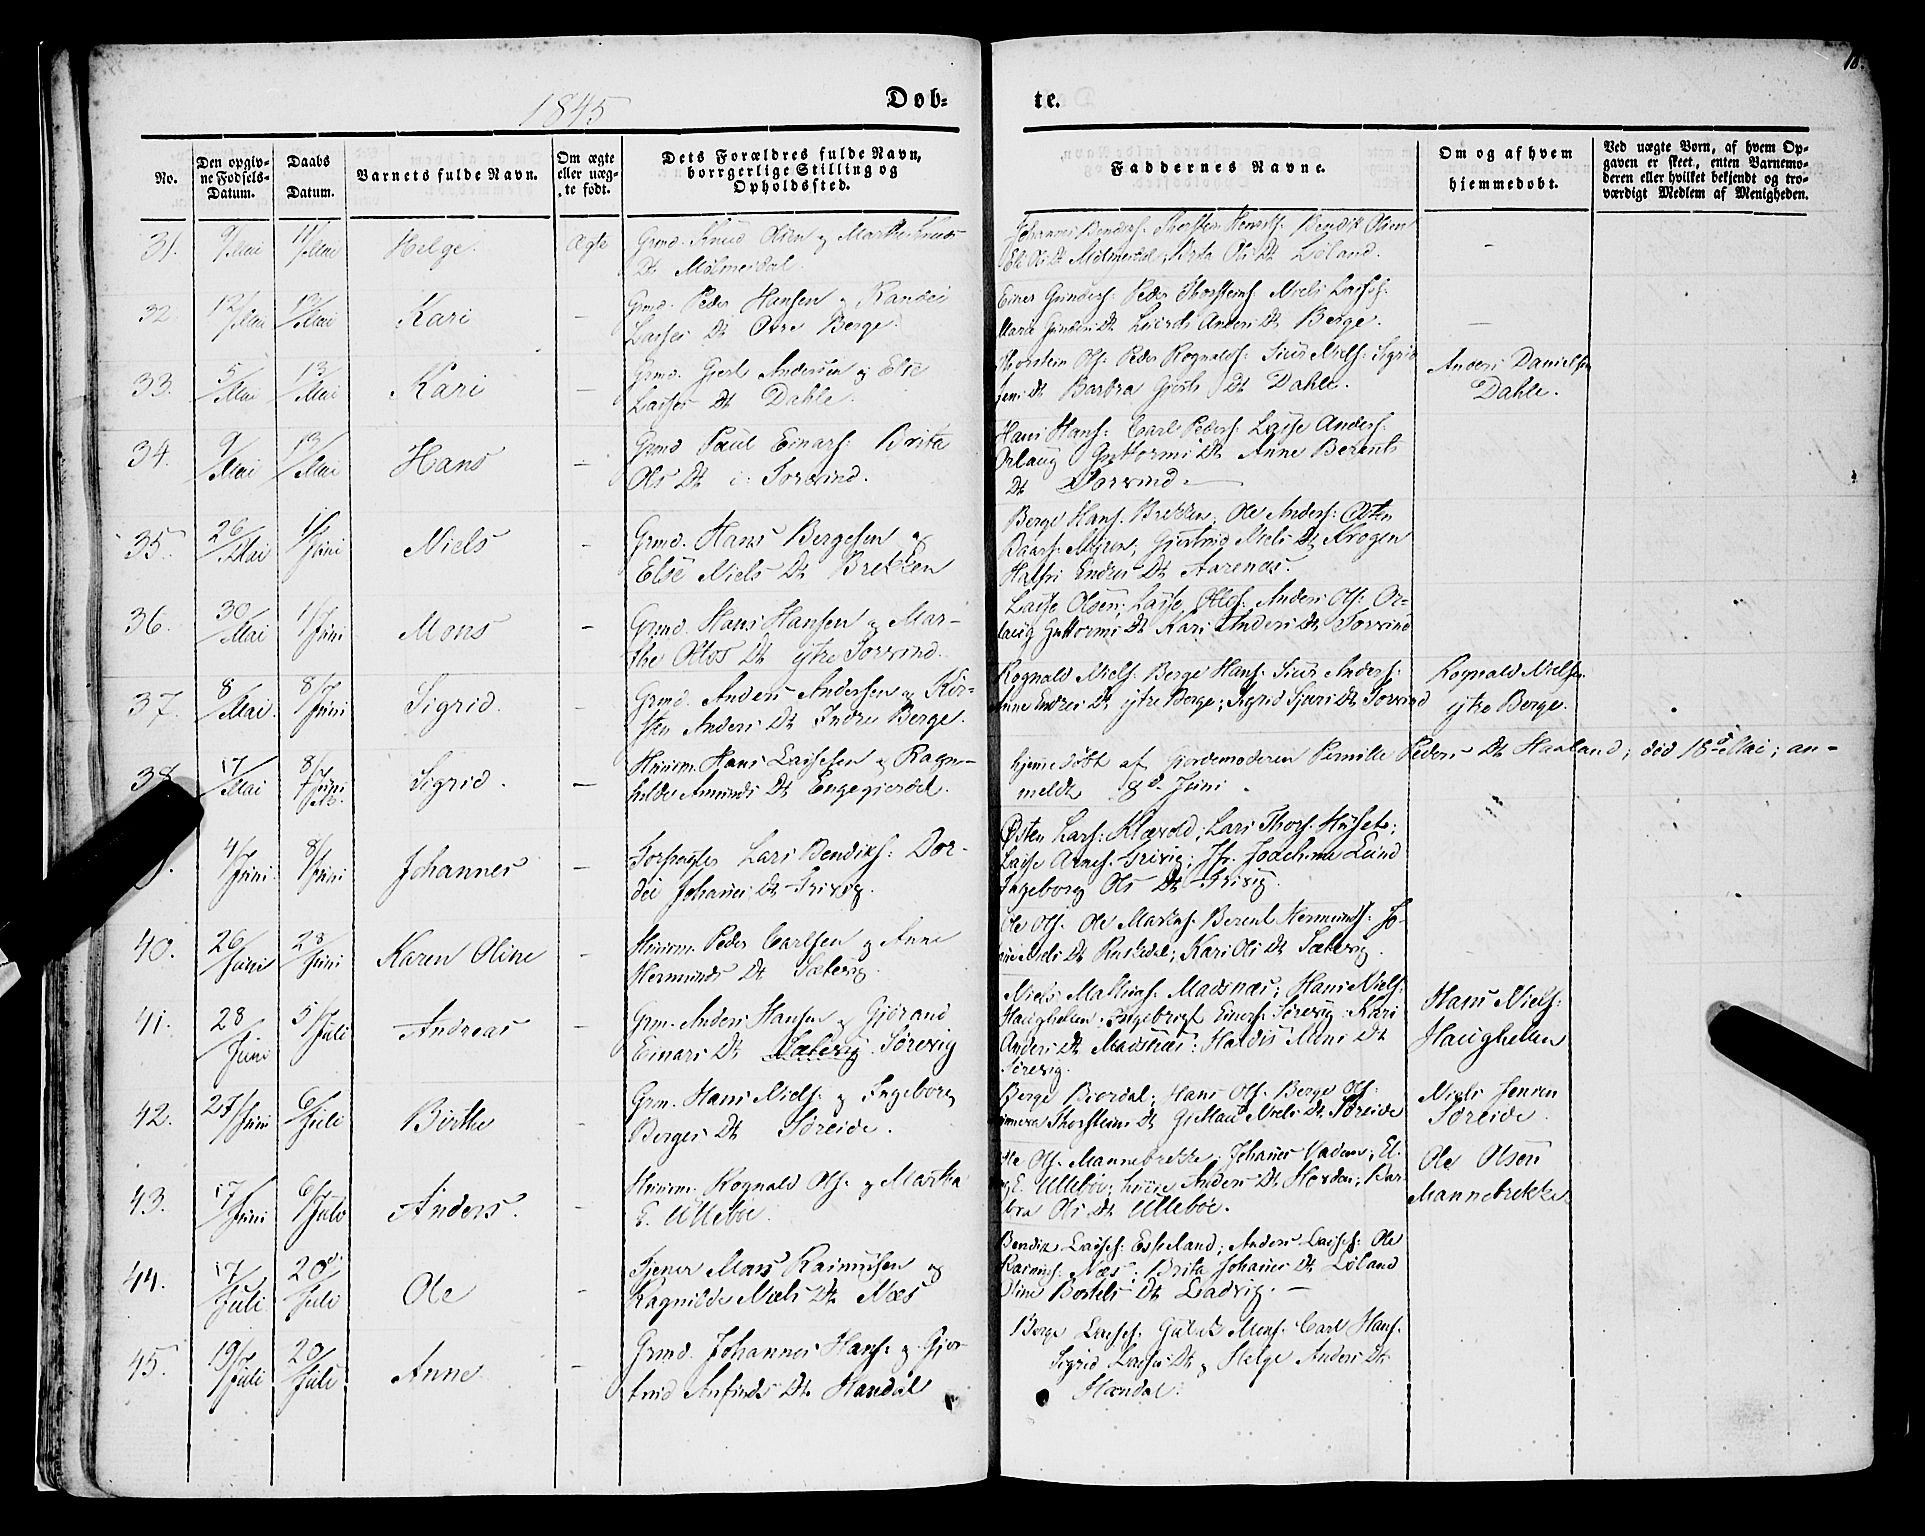 1845
Døb-
te.
18.
No.
Den opgiv-
ne Fødsels-
Datum.
Daabs
Datum.
Barnets fulde Navn.
Om ægte
eller uæg-
te født.
Dets Forældres fulde Navn,
borrgerlige Stilling og
Opholdssted.
Faddernes Navne.
Om og af hvem
hjemmedøbt.
Ved uægte Born, af hvem Op-
gaven er skeet, enten Barnemo-
deren eller hvilket bekjendt og tro-
værdigt Medlem af Menigheden.
31. 9/Mai 11/Mai Helge. Ægte
Grmd. Knud Olsen og Marthe Knuds
Dt Mølmesdal.
Johannes Bendixs: Thorsten Bendix Olsen
Ols Dt Mølmesdal, Brita Ols Dt Løland. -
32. 12/Mai 13/Mai Kari -
Grmd. Peder Hansen og Randei
Lasses Dt Øvre Berge.
Einer Gunders: Peder Thorsteins: Niels Lasses:
Marie Gunders Dt Anders Dt Berge. -
33. 5/Mai 13/Mai Kari -
Grmd. Giert Andersen og Else
Lasses Dt Dahle.
Thorstein Ols: Peder Rognalds: Siur Niels: Sigrid
Jens Dt Barbra Gjerts Dt Dahle.
Anders Danielsen
Dahle.
34. 9/Mai 13/Mai Hans -
Grmd Paul Einars: Brite
Ols Dt i: Sorvind.
Hans Hans: Carl Peders: Lasse Anders:
Orlaug Guttormi Dt Anne Berents
Dt Sorvind. -
35. 26/Mai 1/Juni Niels -
Grmd. Hans Bergesen og
Else Niels Dt Brekken
Berge Hans: Brekken; Ole Anders: Østen
Baars: Myren; Giertrud Niels Dt Krogen
Endres Dt Aarenæs.
36. 30/Mai 1/Juni Mons -
Grmd. Hans Hansen og Mar-
the Olos Dt ytre Sorvind.
Lasse Olsen; Lasse Olos: Anders Ols: Or-
laug Guttormi Dt Kari Anders Dt Sorvind
37. 8/Mai 8/Juni Sigrid. -
Grmd. Anders Andersen og Kir-
sten Anders Dt Indre Berge.
Rognald Niels: Berge Hans: Siur Anders:
Anne Endres Dt ytre Berge; Sigrid Sjurs Dt Sorvind
Rognald Nielsen
ytre Berge.
38. 17/Mai 8/Juni Sigrid. -
Huusm. Hans Lassesen og Ragn-
hilde Amunds Dt Engegierdel.
hjemedøbt af Giordemoderen Pernille Peders Dt Haaland; død 18d Mai; an-
meldt 8d Juni.
4/Juni 8/Juni Johannes -
Forpagter Lars Bendixs: Dor-
dei Johannes Dt Trivig.
Østen Lars: Klævold; Lars Thors: Huset;
Lasse Arnes: Trivig; Jfr. Jochime Lund
Ingeborg Ols Dt Trivig.
40. 26/Juni 28/Juni Karen Oline -
Huusm. Peder Carlsen og Anne
Hermunds Dt Sætevig.
Ole Ols: Ole Markus: Berent Hermunds: Jo-
Niels Dt Risledal; Kari Ols Dt Sætevig.
41. 28/Juni 5/Juli Andreas -
Grm. Anders Hansen og Gjørand
Einars Dt Sætevig Sørevig
Niels Mathias: Madsnæs; Hans Niels:
Haughelen. Ingebrigt Einers: Sørevig Kari
Anders Dt Madsnæs: Haldis Mons Dt
Sørevig.
Hans Niels:
Haughelen
42. 27/Juni 6/Juli Birthe -
Grm. Hans Niels: og Ingeborg
Berges Dt Søreide.
Berge Bierdal; Hans Ols: Berge Ols:
Thorsteins Dt Niels Dt Søreide
Niels Jensen
Søreide.
43. 17/Juni 6/Juli Anders. -
Huusm. Rognald Ols: og Martha
E. Ullebøe.
Ole Ols: Mannebrekke; Johannes Vadum; El.
E. Ullebøe; Anders Dt Herdøen; Bar-
bra Ols Dt Ullebøe.
Ole Olsen
Mannebrekke
44. 17/Juli 20/Juli Ole -
Tjener Mons Rasmusen og
Ragnilde Niels Dt Næs
Bendix Lasses: Esseland; Anders Lasses: Ole
Rasmus: Næs; Brita Johannes Dt Løland
Oline Bertels Dt Ladvig. -
45. 19/Juli 20/Juli Anne -
Grmd. Johannes Hans: og Gjer-
trud Anfinds Dt Handal
Berge Lasses: Guleik Mons: Carl Hans:
Sigrid Lasses Dt og Helge Anders Dt:
Hændal: